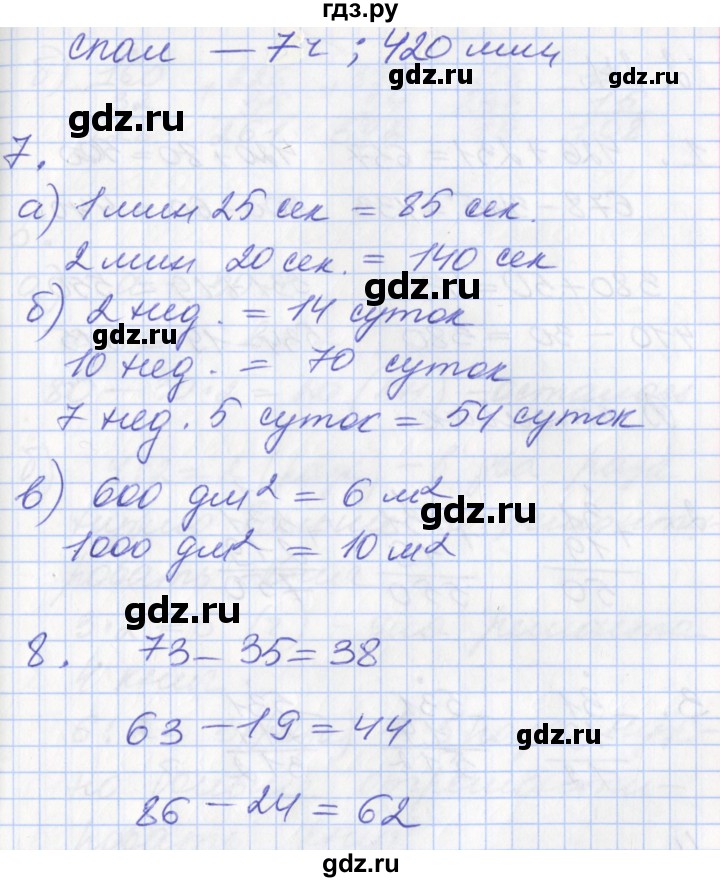 гдз.ру
спал — 7ч ; 420 мин
gdz.ru
gdz.ru
7.
а) 1 мин 25 сек = 85 сек.
2 мин 20 сек. = 140 сек
gdz.ru
б) 2 нед. = 14 суток
gdz.ru
10 нед. = 70 суток
7 нед. 5 суток = 54 суток
в) 600 дм² = 6 м²
gdz.ru
1000 дм² = 10 м²
gdz.ru
8. 73 – 35 = 38
63 – 19 = 44
gdz.ru
86 – 24 = 62
gdz.ru